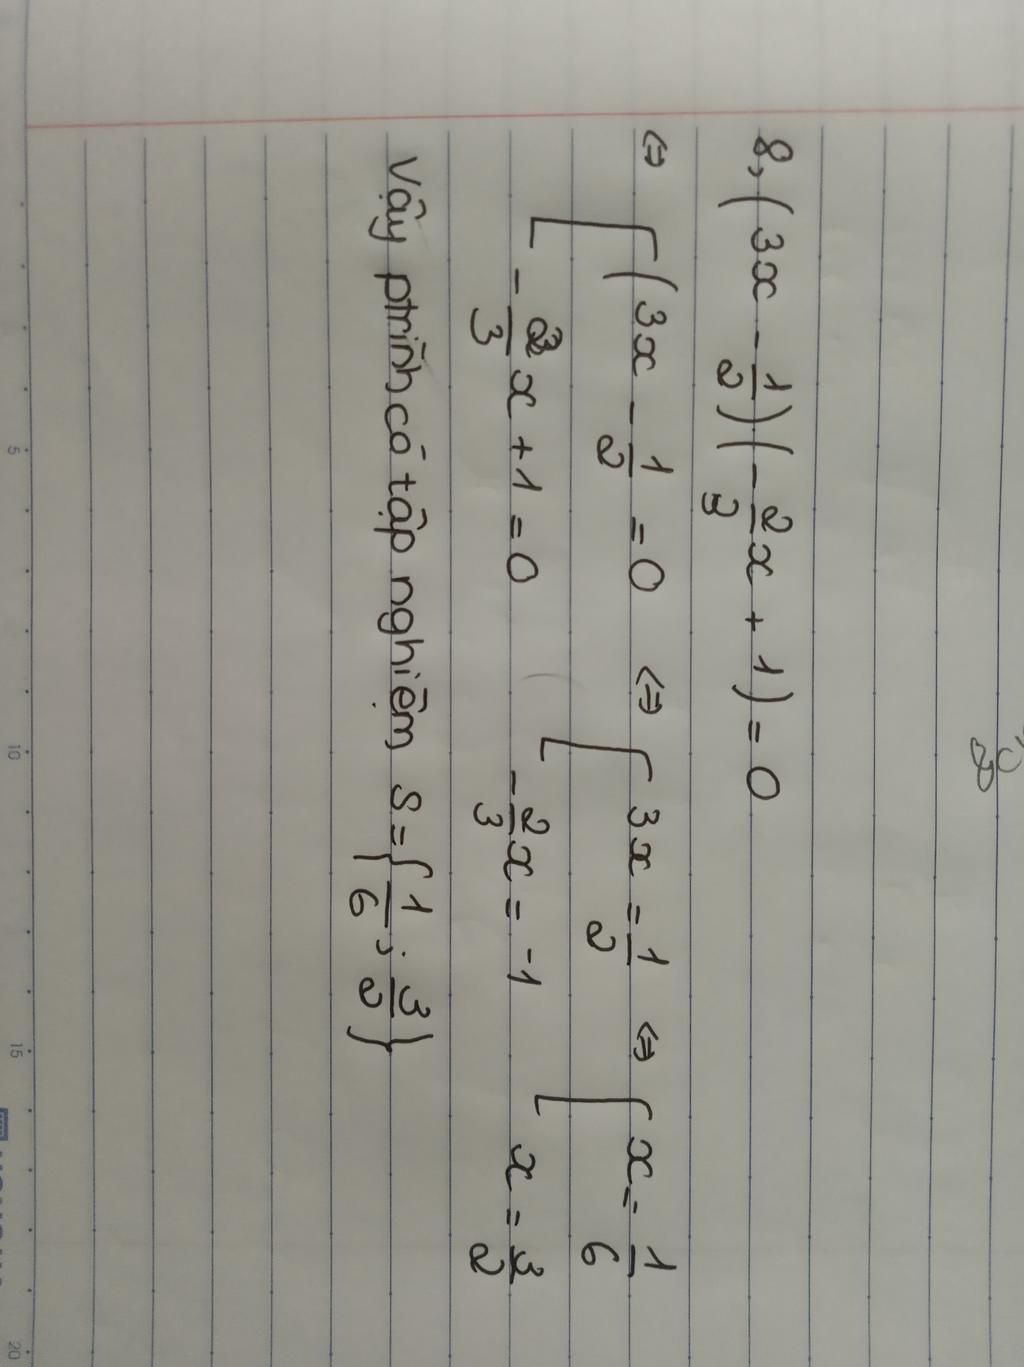 8, (3x - 1/2)(- 2/3 x + 1) = 0
⇔ [ (3x - 1/2 = 0 ⇔ [ 3x = 1/2 ⇔ [ x = 1/6
- 2/3 x + 1 = 0 - 2/3 x = -1 x = 3/2
Vậy ptrình có tập nghiệm S = {1/6; 3/2}
5
10
15
20